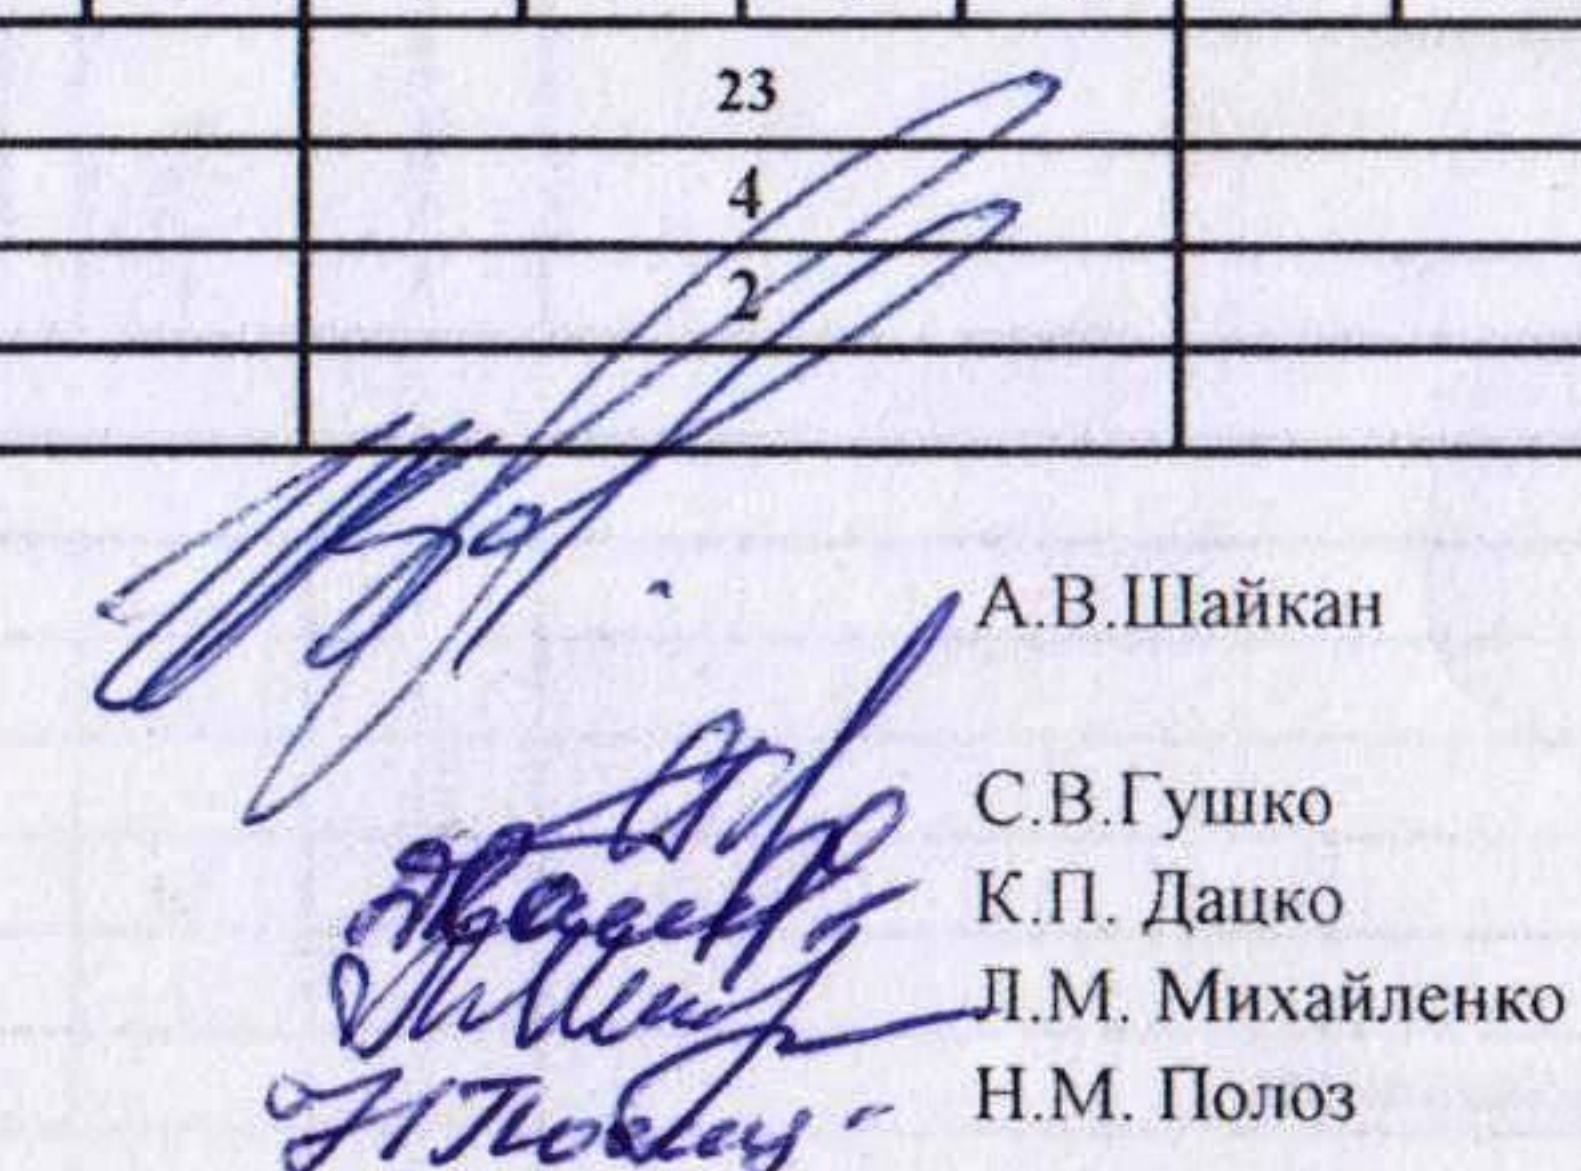 23
4
2
А.В.Шайкан
С.В.Гушко
К.П. Дацко
Л.М. Михайленко
Н.М. Полоз